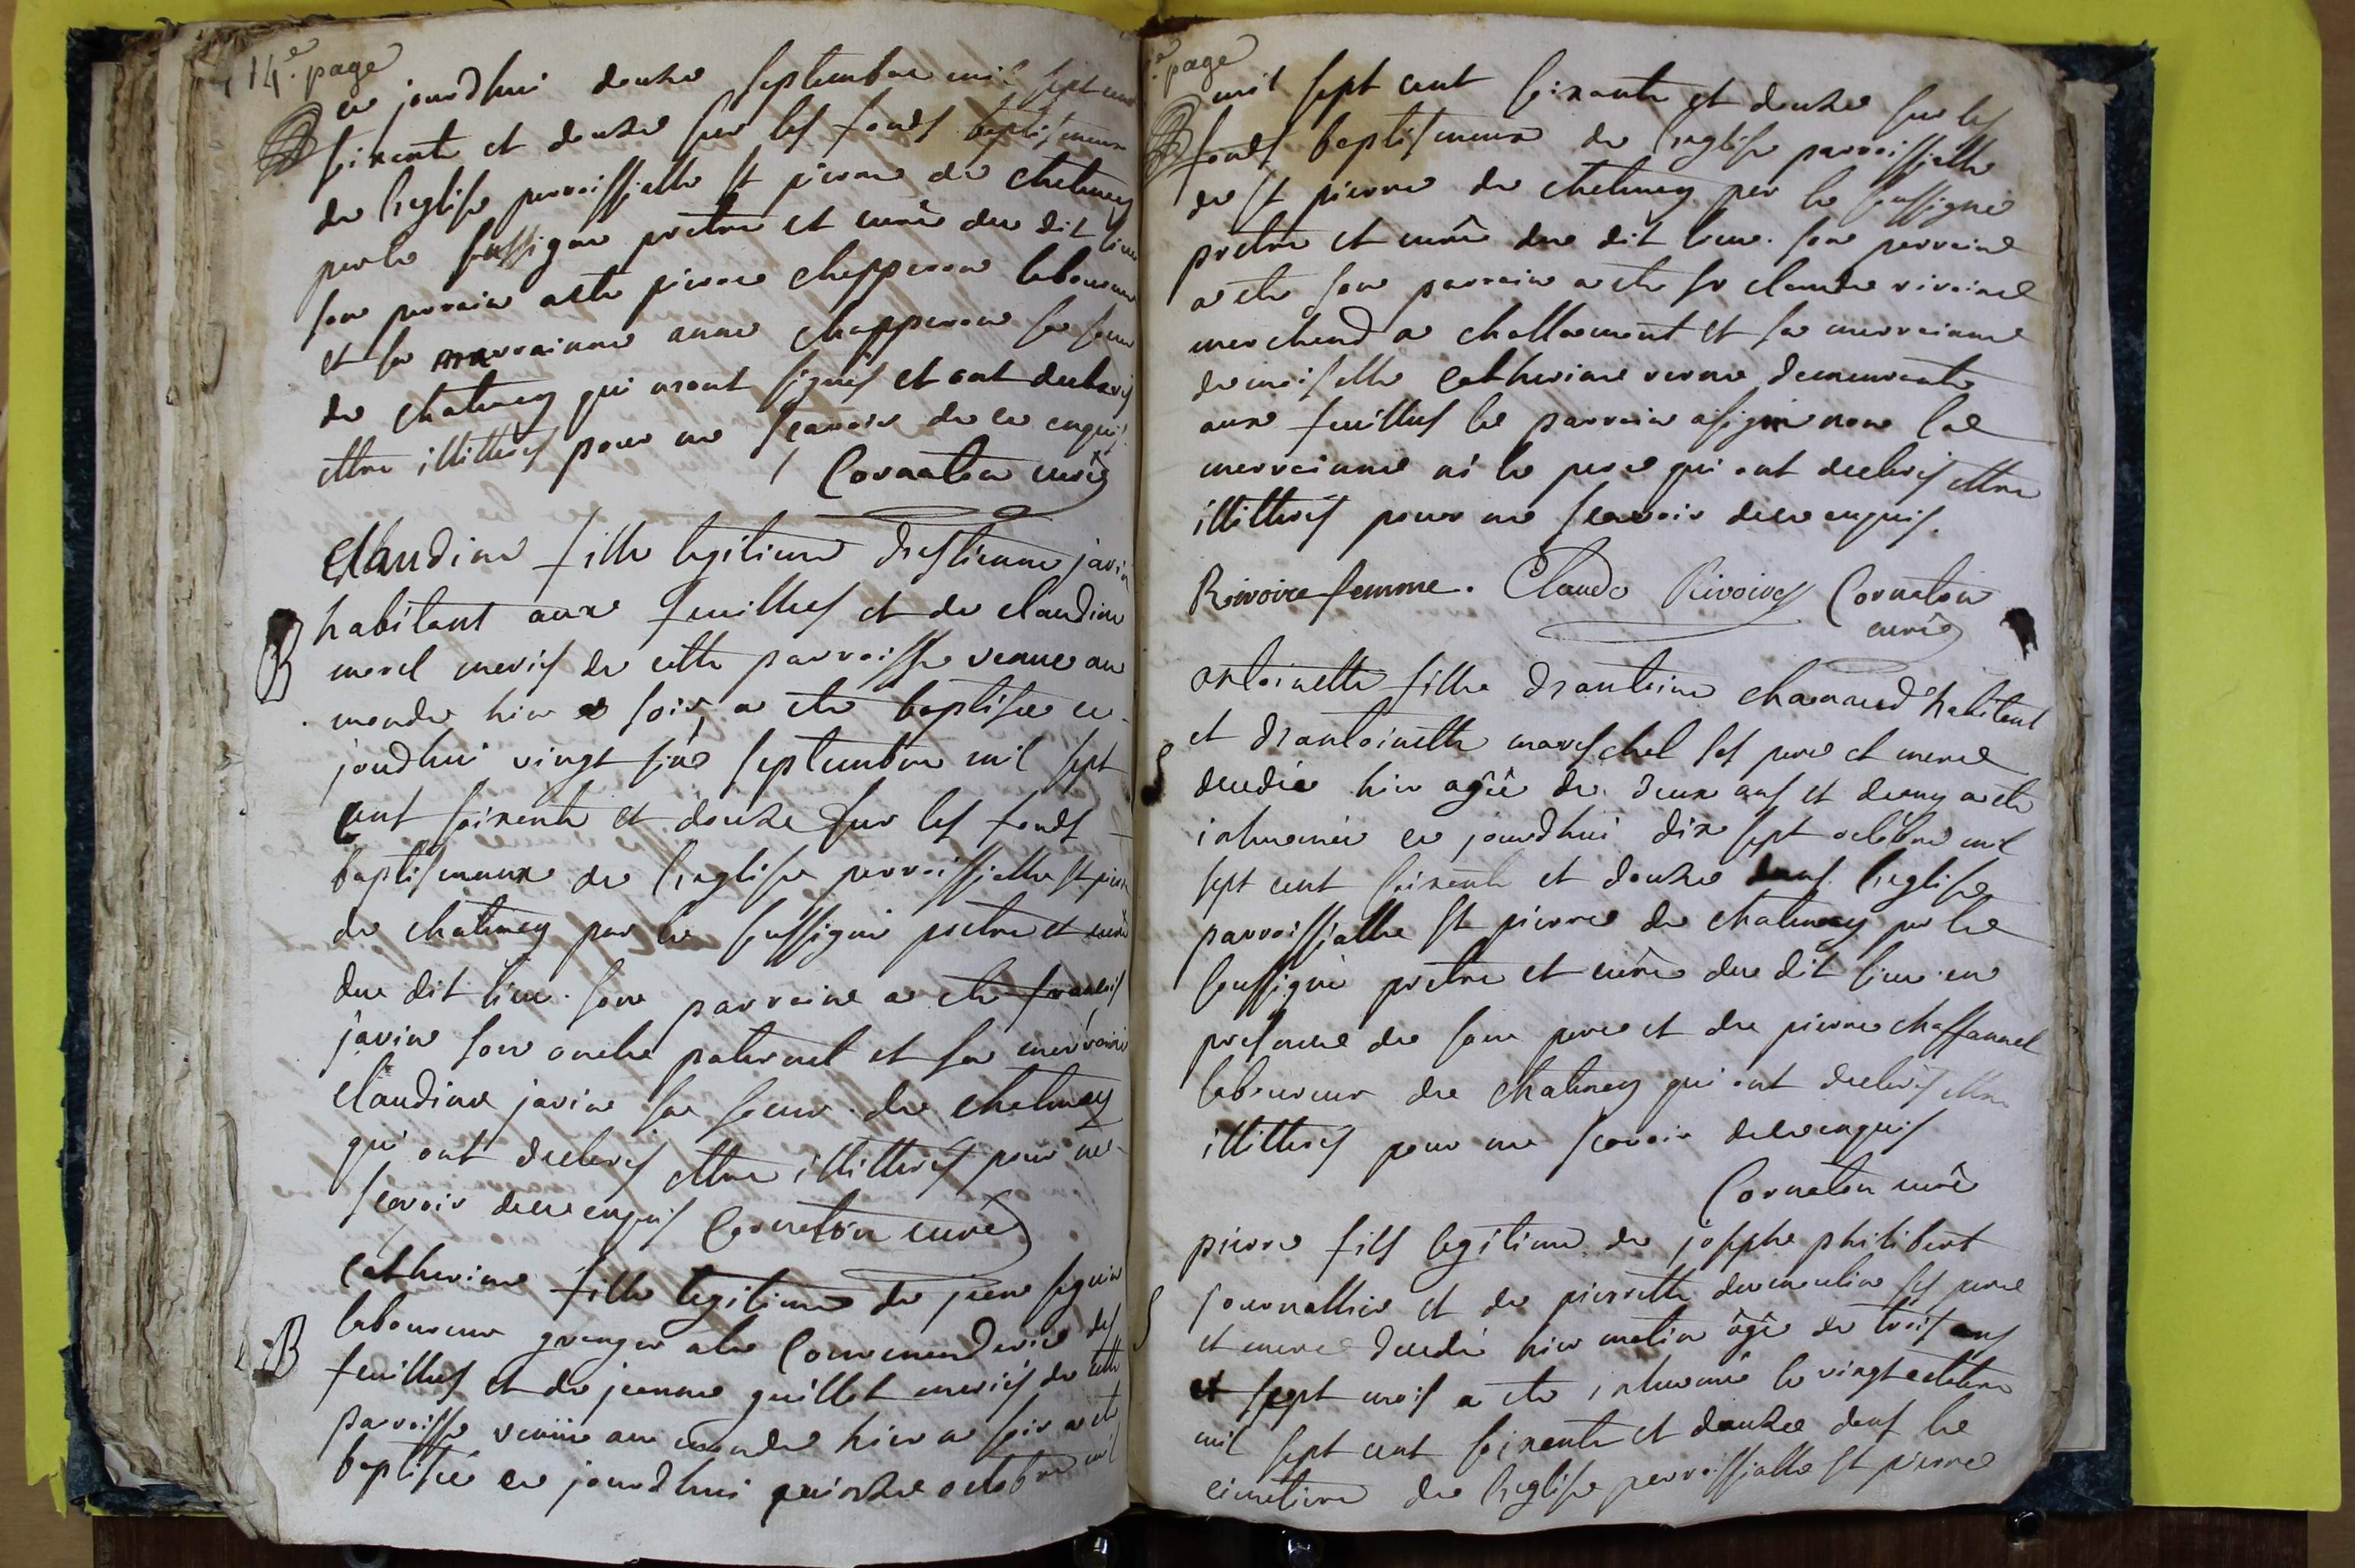 14.e page
ce jourdhui douze septembre mil sept cent
soixente et douze sur les fonds baptismeux
de l'eglise perroissialle st pierre de chetenay
par le soussigne pretre et curé du dit lieu
son perrain a ete pierre chepperon laboureur
et sa marrainne anne chapperon sa soeur
de chatenay qui n'ont signes et ont declarés
ettre illitterés pour ne scavoir de ce enquis
Cornaton curé
Claudine fille legitime d'estienne javin
B habitant aux feuilles et de claudine
morel meriés de cette parroisse venue au
monde hier a soir, a ete baptisee ce
joudhui vingt six septembre mil sept
cent soixente et douze sur les fonds
baptismeux de l'eglise perroissialle st pierre
de chatenay par le soussigné pretre et curé
du dit lieu. son parrain a ete francois
javin son oncle paternel et sa merrainne
claudine javin sa soeur de chetenay
qui ont declerés ettre illitterés pour ne
scavoir de ce enquis Cornaton curé
Catherine fille legitime de jean seguin
laboureur granger a la Commenderie des
B feuilles et de jeanne guillet meriés de cette
parroisse venüe au monde hier a soir a ete
baptisée ce jourdhui quinze octobre mil
e page
mil sept cent soixante et douze sur les
fonds baptismeux de l'eglise parroissialle
de st pierre de chetenay per le soussigné
pretre et curé du dit lieu. son perrain
a ete son parrain a ete sr claude rivoire
merchend a challamont et sa merrainne
demoiselle Catherine verne demeurente
aux feuilles le parrain a signe non la
merrainne ni le pere qui ont declerés ettre
illitterés pour ne scavoir de ce enquis.
Rivoire femme. Claude Rivoire Cornaton
curé
antoinette fille d'antoine chanaud habitent
et d'antoinette mareschel ses pere et mere
decedée hier agée de deux ans et demy a ete
inhumée ce jourdhui dix sept octobre mil
sept cent soixente et douze dans l'eglise
parroissialle st pierre de chatenay par le
soussigné pretre et curé du dit lieu en
presence de son pere et de pierre chaffannel
laboureur de chatenay qui ont declerés ettre
illitterés pour ne scavoir de ce enquis
Cornaton curé
pierre fils legitime de josephe philibert
journallier et de pierrette dumoulin ses pere
et mere decedé hier matin âgé de trois ans
et sept mois a ete inhumé le vingt octobre
mil sept cent soixente et douze dans le
cimetiere de l'eglise perroissialle st pierre